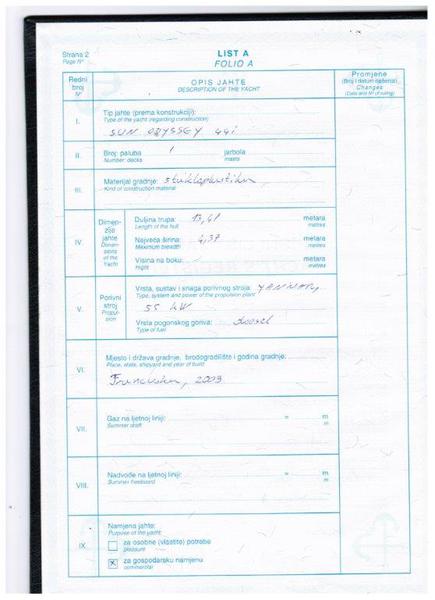 Strana 2
Page N°
LIST A
FOLIO A
Redni broj
N°
OPIS JAHTE
DESCRIPTION OF THE YACHT
Promjene
(Broj i datum rješenja)
Changes
(Data and N° of ruling)
I.
Tip jahte (prema konstrukciji):
Type of the yacht (regarding construction)
SUN ODYSSEY 44i
II.
Broj: paluba 1 jarbola
Number: decks masts
III.
Materijal gradnje: stakloplastika
Kind of construction material
IV
Dimenzije jahte
Dimensions of the Yacht
Duljina trupa: 13,41 metara
Length of the hull metres
Najveća širina: 4,37 metara
Maximum breadth metres
Visina na boku: metara
Hight metres
V.
Porivni stroj
Propulsion
Vrsta, sustav i snaga porivnog stroja: YANMAR,
Type, system and power of the propulsion plant
55 kW
Vrsta pogonskog goriva: diesel
Type of fuel
VI.
Mjesto i država gradnje, brodogradilište i godina gradnje:
Place, state, shipyard and year of build
Francuska, 2009
VII.
Gaz na ljetnoj liniji: = m
Summer draft m
VIII.
Nadvođe na ljetnoj liniji: = m
Summer freeboard m
IX
Namjena jahte:
Purpose of the yacht:
za osobne (vlastite) potrebe
pleasure
x za gospodarsku namjenu
commercial